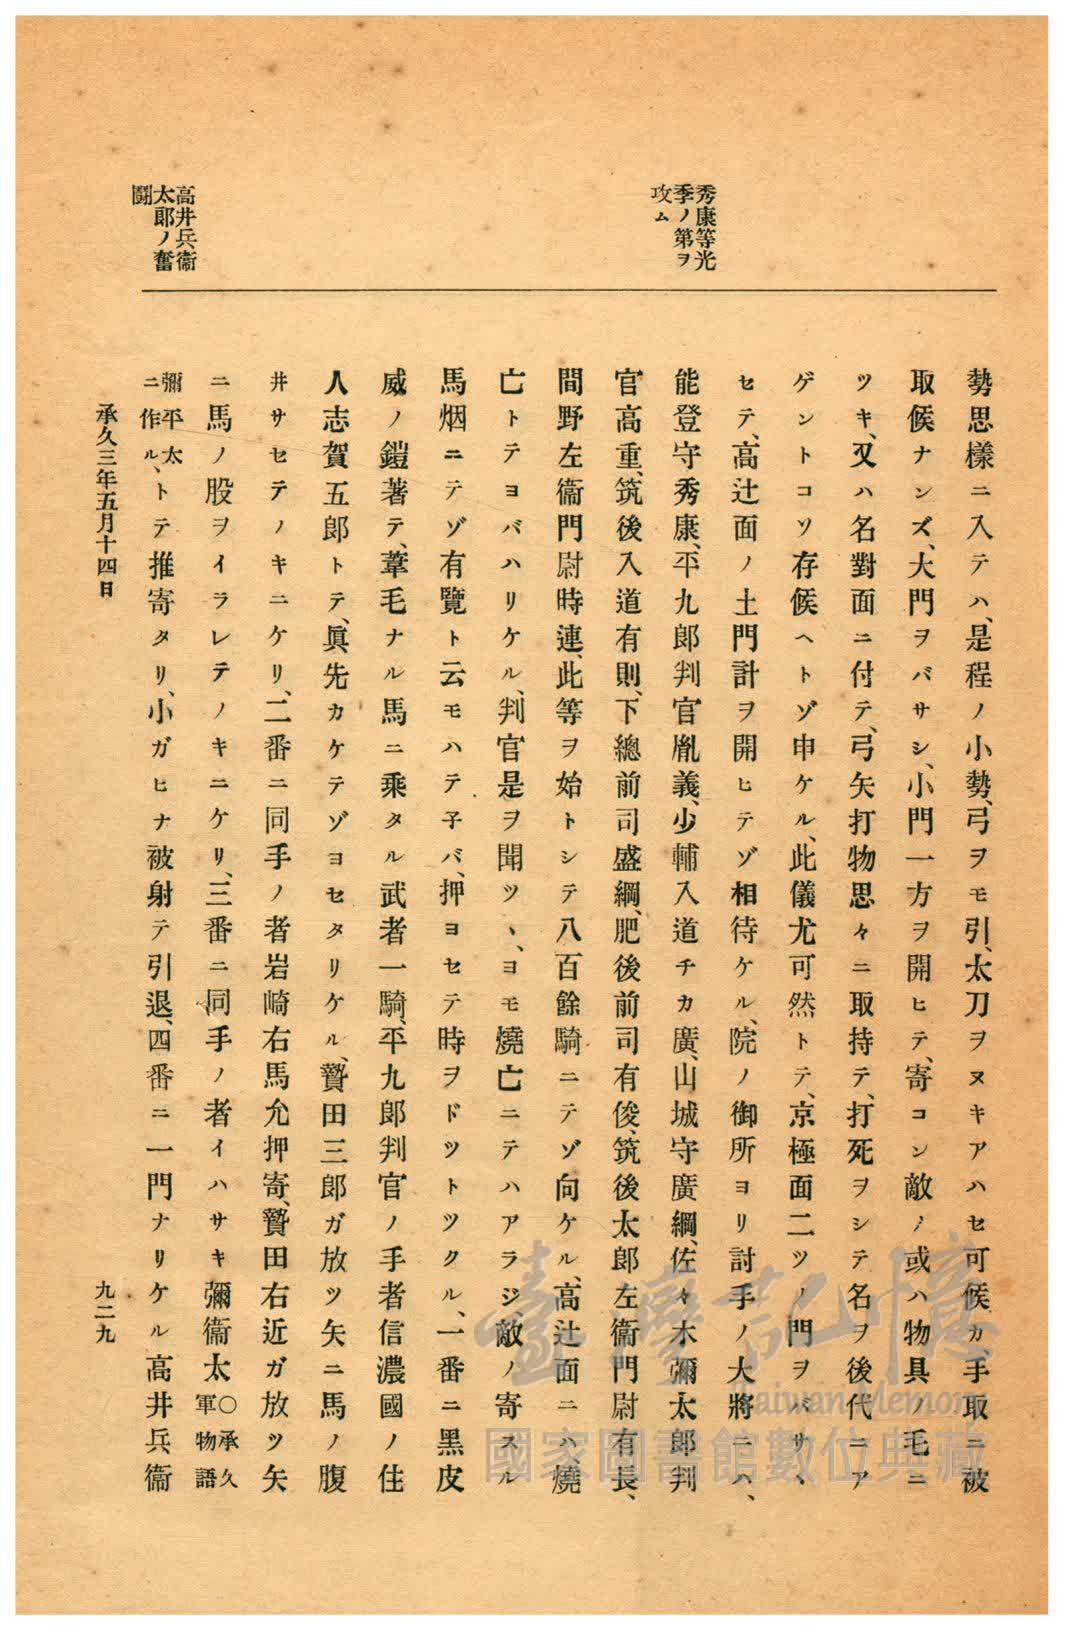 秀康等光
季ノ第ヲ
攻ム
高井兵衞
太郎ノ奮
鬪
勢思樣ニ入テハ、是程ノ小勢、弓ヲモ引、太刀ヲヌキアハセ可候カ、手取ニ被
取候ナンズ、大門ヲバサシ、小門一方ヲ開ヒテ、寄コン敵ノ或ハ物具ノ毛ニ
ツキ、又ハ名對面ニ付テ、弓矢打物思々ニ取持テ、打死ヲシテ名ヲ後代ニア
ゲントコソ存候ヘトゾ申ケル、此儀尤可然トテ、京極面二ツノ門ヲバサヽ
セテ、高辻面ノ土門計ヲ開ヒテゾ相待ケル、院ノ御所ヨリ討手ノ大將ニハ、
能登守秀康、平九郎判官胤義、少輔入道チカ廣、山城守廣綱、佐々木彌太郎判
官高重、筑後入道有則、下總前司盛綱、肥後前司有俊、筑後太郎左衞門尉有長、
間野左衞門尉時連、此等ヲ始トシテ八百餘騎ニテゾ向ケル、高辻面ニハ、燒
亡トテヨバハリケル、判官是ヲ聞ツヽ、ヨモ燒亡ニテハアラジ、敵ノ寄スル
馬烟ニテゾ有覽ト云モハテ子バ、押ヨセテ時ヲドツトツクル、一番ニ黑皮
威ノ鎧著テ、葦毛ナル馬ニ乘タル武者一騎、平九郎判官ノ手者信濃國ノ住
人志賀五郎トテ、眞先カケテゾヨセタリケル、贄田三郎ガ放ツ矢ニ馬ノ腹
井サセテノキニケリ、二番ニ同手ノ者岩崎右馬允押寄、贄田右近ガ放ツ矢
ニ馬ノ股ヲイラレテノキニケリ、三番ニ同手ノ者イハサキ彌衞太〇承久軍物語
彌平太ニ作ル、トテ推寄タリ、小ガヒナ被射テ引退、四番ニ一門ナリケル高井兵衞
承久三年五月十四日
九二九
臺灣記憶
Taiwan Memory
國家圖書館數位典藏